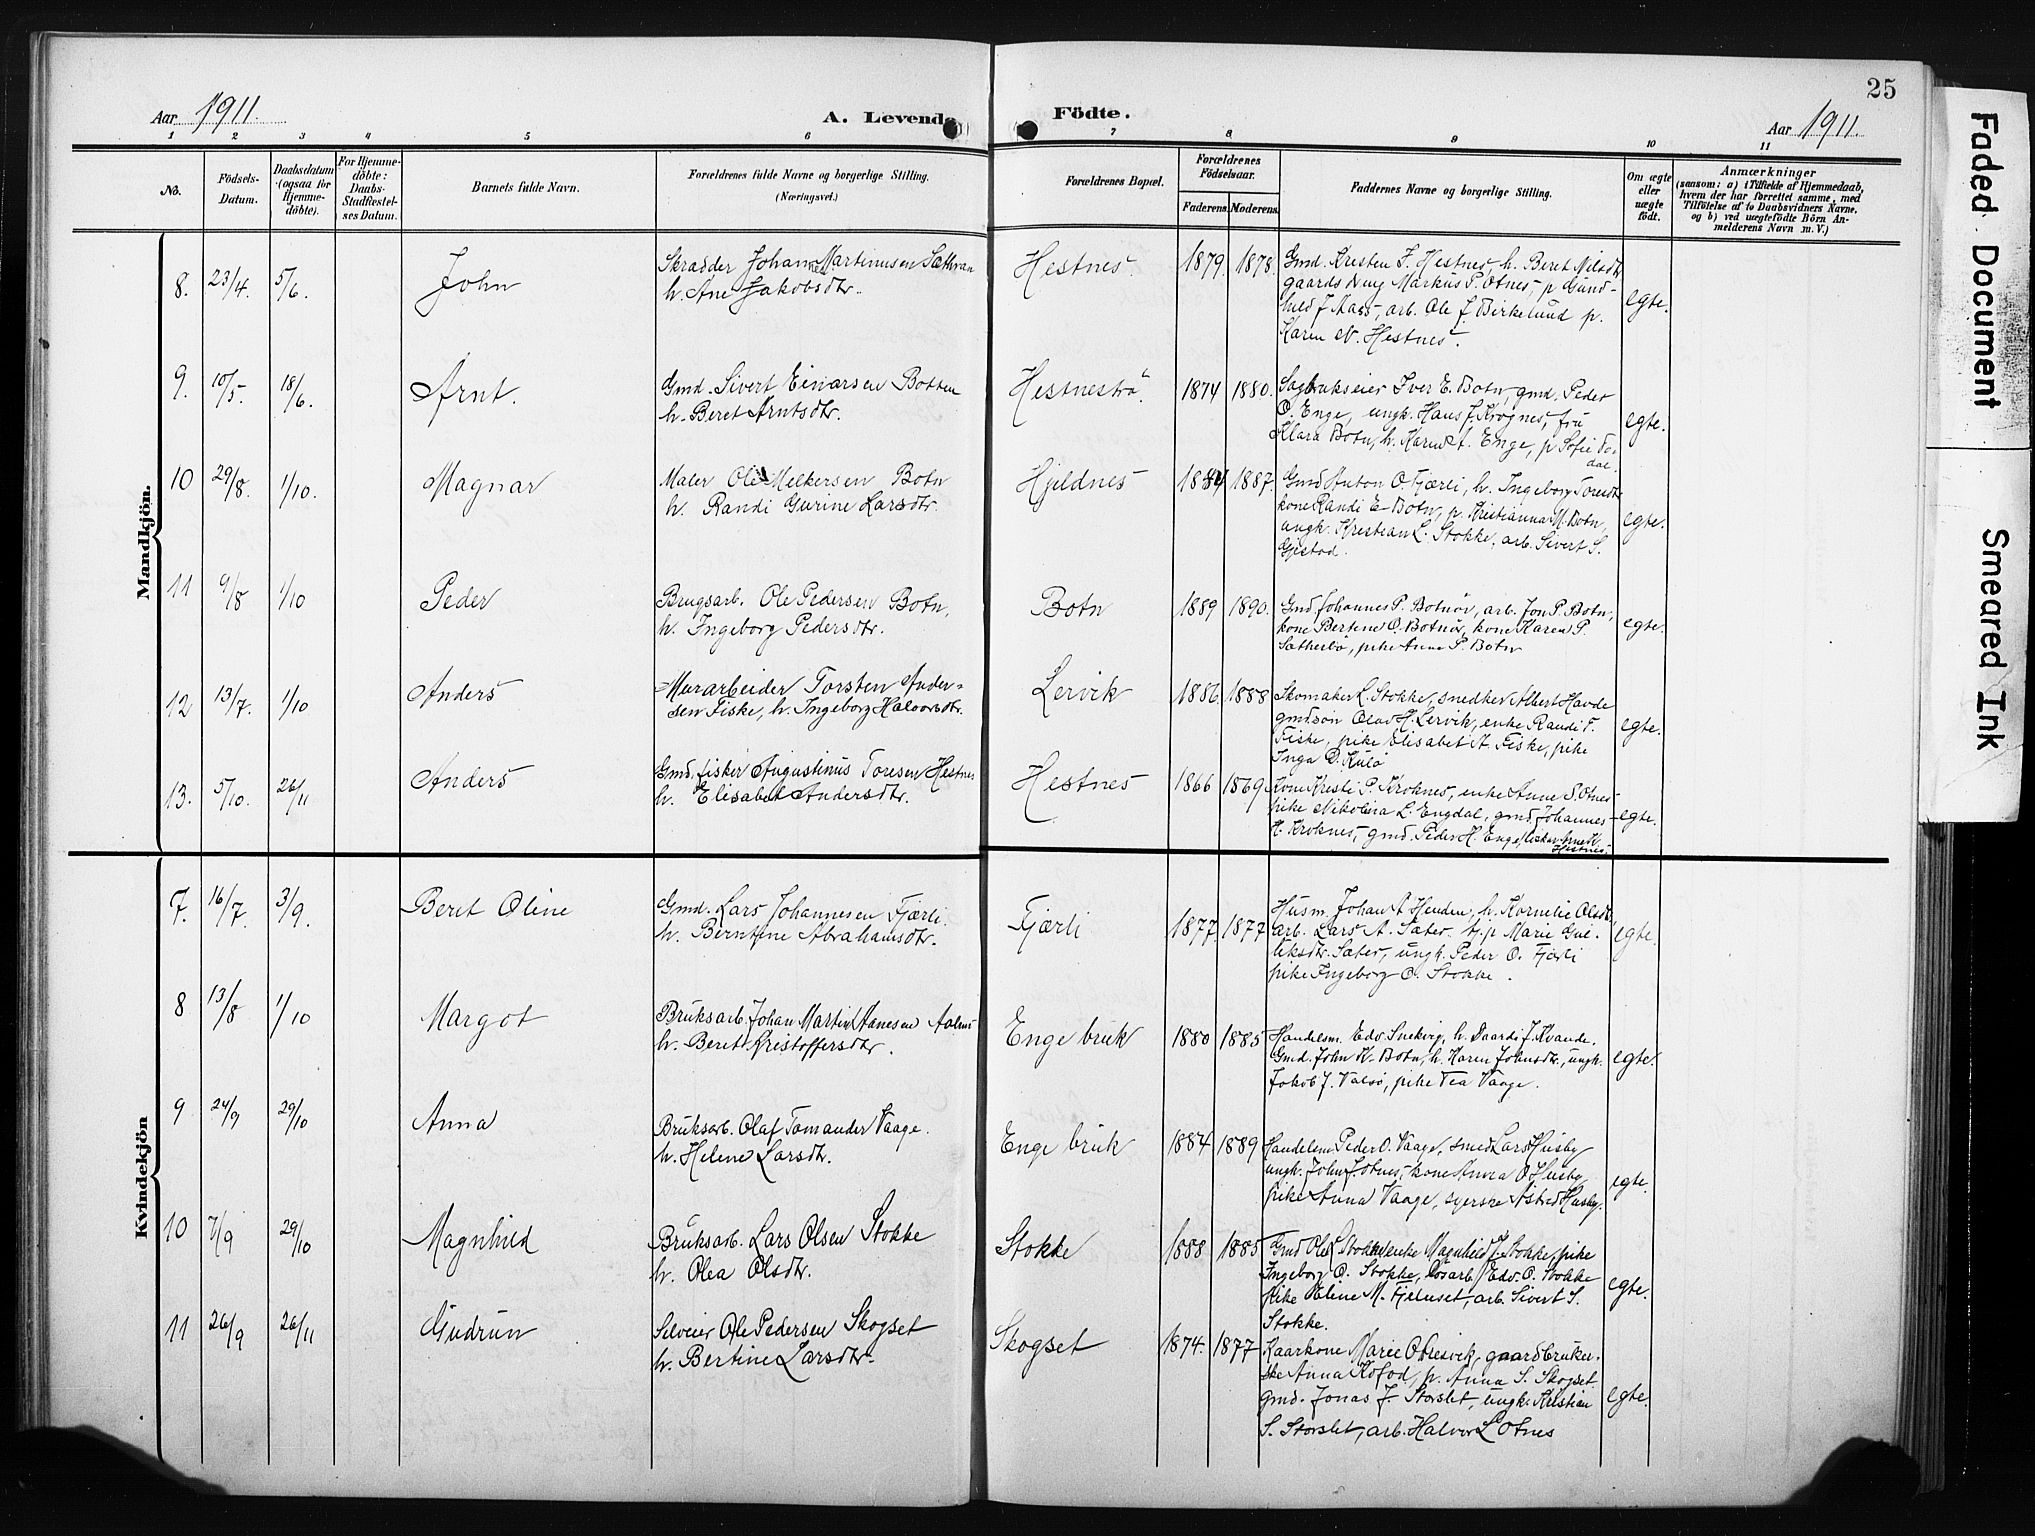 25
Aar 1911.
A. Levende
Födte.
Aar 1911.
1 2 3 4 5 6 7 8 9 10 11
No.
Födsels-
Datum.
Daabsdatum
(ogsaa for
Hjemme-
döbte).
For Hjemme-
döbte:
Daabs-
Stadfestel-
ses Datum.
Barnets fulde Navn.
Forældrenes fulde Navne og borgerlige Stilling.
(Næringsvei.)
Forældrenes Bopæl.
Forældrenes
Födselsaar.
Faderens.
Moderens.
Faddernes Navne og borgerlige Stilling.
Om ægte
eller
uægte
födt.
Anmærkninger
(saasom: a) i Tilfælde af Hjemmedaab,
hvem der har forrettet samme, med
Tilföielse af to Daabsvidners Navne.
og b) ved uægtefödte Börn An-
melderens Navn m. V.)
Mandkjön.
8. 23/4. 5/6. John
Skrædder Johan Martinusen Sæthran
h. Ane Jakobsdtr.
Hestnes. 1879. 1878.
Gmd. Kristen J. Hestnes, h. Beret Nilsdtr
gaardsdreng Markus P. Otnes, p Gund-
hild J Aass, arb. Ole J. Birkelund p.
Karen N. Hestnes.
egte.
9. 10/5. 18/6. Arnt.
Gmd. Sivert Einarsen Botten
h. Beret Arntsdtr.
Hestneströ. 1874 1880.
Sagbrukseier Iver E. Botn, gmd. Peder
O. Enge, ungk. Hans J. Krognes, fru
Klara Botn, h. Karen A. Enge, p Sofie
dal.
egte.
10 29/8. 1/10. Magnar
Maler Ole Melkersen Botn
h. Randi Gurine Larsdtr.
Hjeldnes 1884 1887.
Gmd Anton O Fjærli, h. Ingeborg Toresdtr
kone Randi E Botn, p. Kristianna M. Botn,
ungk. Kristian L. Stokke, arb. Sivert S.
Gjestad.
egte.
11 9/8 1/10 Peder
Brugsarb. Ole Pedersen Botn,
h. Ingeborg Pedersdtr.
Botn 1889 1890.
Gmd. Johannes P. Botnör, arb. Jon P. Botn,
kone Bertine O. Botnör, kone Karen P.
Sætherbö, pike Anne P. Botn
egte.
12 13/7. 1/10 Anders
Murarbeider Torsten Ander-
sen Fiske, h. Ingeborg Halvorsdtr.
Lervik 1886. 1888
Skomaker L. Stokke, snedker Albert Havde
gmdsön Olav H. Lervik, enke Randi T.
Fiske, pike Elisabet A. Fiske, pike
Inga D. Kulö
egte.
13. 5/10. 26/11 Anders
Gmd. fisker Augustinus Toresen Hestnes
h. Elisabet Andersdtr.
Hestnes 1866 1869
Kone Kristi P. Kroknes, enke Anne S. Otnes
pike Nikolina L. Engdal, gmd. Johannes
H. Kroknes, gmd. Peder H. Enge, fisker Arne K
Hestnes.
egte.
Kvindekjön
7. 16/7. 3/9. Beret Oline
Gmd. Lars Johannesen Fjærli
h. Berntine Abrahamsdtr.
Fjærli 1877. 1877
Husm. Johan A Henden, h. Kornelie Olsdtr
arb. Lars A. Sæter. p Marie Gul-
liksdtr. Sæter, ungk. Peder O. Fjærli
pike Ingeborg O. Stokke.
egte.
8 13/8 1/10 Margot
Bruksarb. Johan Martin
h. Beret Kristoffersdtr.
Enge bruk 1880 1885
Handelsm. Edv. Snekvig, h. Daardi J. Kvande.
Gmd. John K. Botn, h. Karen Johnsdtr, ungk.
Jokob J. Valsö, pike Tea Vaage.
egte.
9 24/9 29/10 Anna
Bruksarb. Olaf Tomander Vaage.
h. Helene Larsdtr.
Enge bruk 1884 1889
Handelsm Peder O. Vaage, smed Lars Husby
ungk. John J. Otnes, kone Anna O Husby
pike Anna Vaage, syerske Astrid Husby.
egte.
10 7/9 29/10 Magnhild
Bruksarb. Lars Olsen Stokke
h. Olea Olsdtr.
Stokke 1888 1885
Gmd Ole L Stokke, enke Magnhild J. Stokke, pike
Ingeborg O. Stokke, losarb. Edv. O. Stokke
pike Eline M. Fjeluset, arb. Sivert S.
Stokke.
egte.
11 26/9 26/11 Gudrun
Selveier Ole Pedersen Skogset
h. Bertine Larsdtr.
Skogset 1874. 1877
Kaarkone Marie O Dresvik, gaardbruker-
ske Anna Kofod, p. Anna S. Skogset.
gmd. Jonas J. Storslet, ungk. Kristian
S. Storslet, arb. Halvor L Otnes
egte.
Faded Document
Smeared Ink